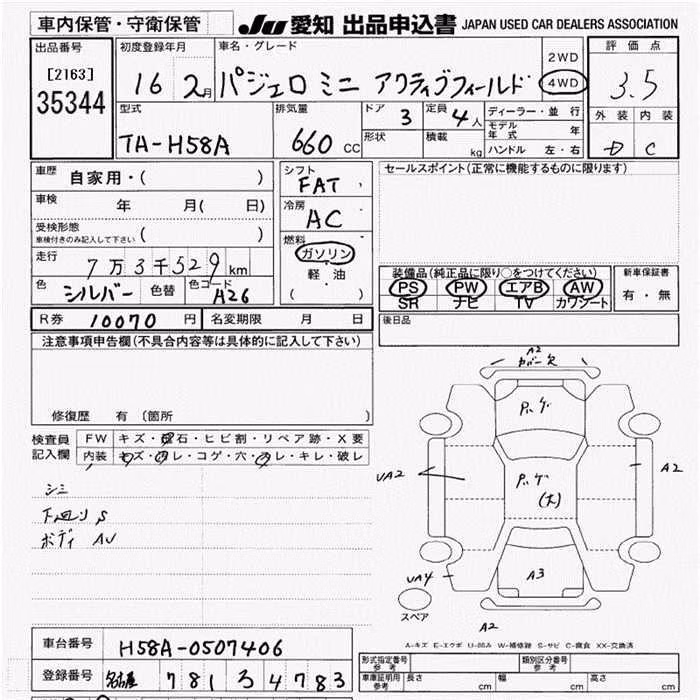 車内保管・守衛保管
JU 愛知 出品申込書 JAPAN USED CAR DEALERS ASSOCIATION
出品番号
[2163]
35344
初度登録年月
16 2月
車名・グレード
パジェロ ミニ アクティブフィールド
2WD
4WD
評価点
3.5
外装 内装
D C
型式
TA-H58A
排気量
660 CC
ドア 3
定員 4人
形状
積載 kg
ディーラー・並行
モデル年式 年
ハンドル 左・右
車歴 自家用・( )
車検 年 月( 日)
受検形態
車検付きのみ記入して下さい ( )
走行 7万3千529km
色 シルバー 色替 色コード A26
シフト
FAT
冷房
AC
燃料
ガソリン
軽油
( )
セールスポイント(正常に機能するものに限ります)
装備品(純正品に限り○をつけてください)
PS PW エアB AW
SR ナビ TV カワシート
新車保証書
有・無
R券 10070 円 名変期限 月 日
後日品
注意事項申告欄(不具合内容等は具体的に記入して下さい)
修復歴 有(箇所 )
検査員
記入欄
FW キズ・飛石・ヒビ割・リペア跡・X要
内装 キズ・汚レ・コゲ・穴・スレ・キレ・破レ
シミ
下廻り S
ボディ AU
A2
カバー欠
UA2
A2
A3
UA4
スペア
A2
A-キズ E-エクボ U-凹み W-補修跡 S-サビ C-腐食 XX-交換済
車台番号 H58A-0507406
登録番号 名古屋 781 3 4783
形式指定番号
参考
類別区分番号
参考
車庫証明用
参考
長さ cm 幅 cm 高さ cm